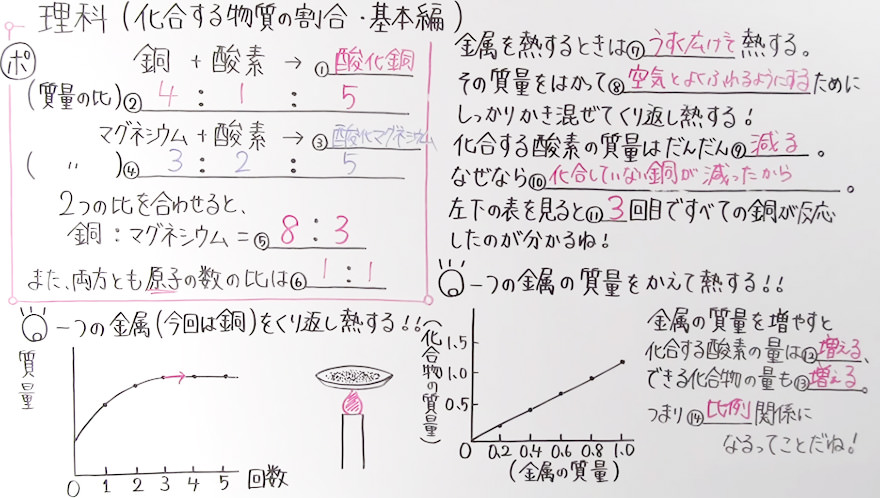 理科 (化合する物質の割合・基本編)
ポ
銅 + 酸素 → ① 酸化銅
(質量の比) ② 4 : 1 : 5
マグネシウム + 酸素 → ③ 酸化マグネシウム
( 〃 ) ④ 3 : 2 : 5
2つの比を合わせると、
銅 : マグネシウム = ⑤ 8 : 3
また、両方とも原子の数の比は⑥ 1 : 1
一つの金属(今回は銅)をくり返し熱する!!
質量
0 1 2 3 4 5 回数
金属を熱するときは⑦うすく広げて熱する。
その質量をはかって⑧空気とよくふれるようにするために
しっかりかき混ぜてくり返し熱する!
化合する酸素の質量はだんだん⑨減る。
なぜなら⑩化合していない銅が減ったから。
左下の表を見ると⑪3回目ですべての銅が反応
したのが分かるね!
一つの金属の質量をかえて熱する!!
(化合物の質量)
1.5
1.0
0.5
0 0.2 0.4 0.6 0.8 1.0
(金属の質量)
金属の質量を増やすと
化合する酸素の量は⑫増える、
できる化合物の量も⑬増える。
つまり⑭比例関係に
なるってことだね!